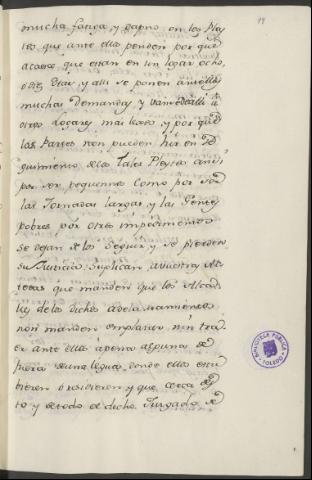 19
mucha fatiga, y daño en los Pley
tos que ante ellos penden por que
acaece que estan en un lugar ocho,
o diez dias, y alli se ponen ante ellos
muchas demandas y van de alli a
otros Logares mas lexos, y por que
las Partes non pueden hir en se
guimiento de los tales Pleytos ansi
por ser pequeños como por ser
las Jornadas largas, y las Gentes
pobres por otros impedimentos
se dejan de los seguir y se pierden
su Justicia. Suplican a vuestras Al
tezas que manden que los Alcal
des de los dichos adelantamientos
non manden emplazar, nin tra
er ante ellos a persona alguna de
fuera de una legua donde ellos estu
bieren o residieren y que cerca de es
to y de todo el dicho Juzgado se
BIBLIOTECA PÚBLICA
TOLEDO